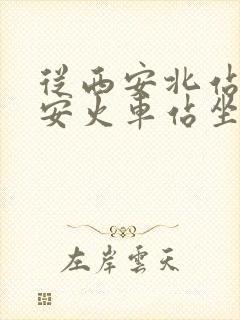 從西安北佔
安火車佔坐
左岸雲天